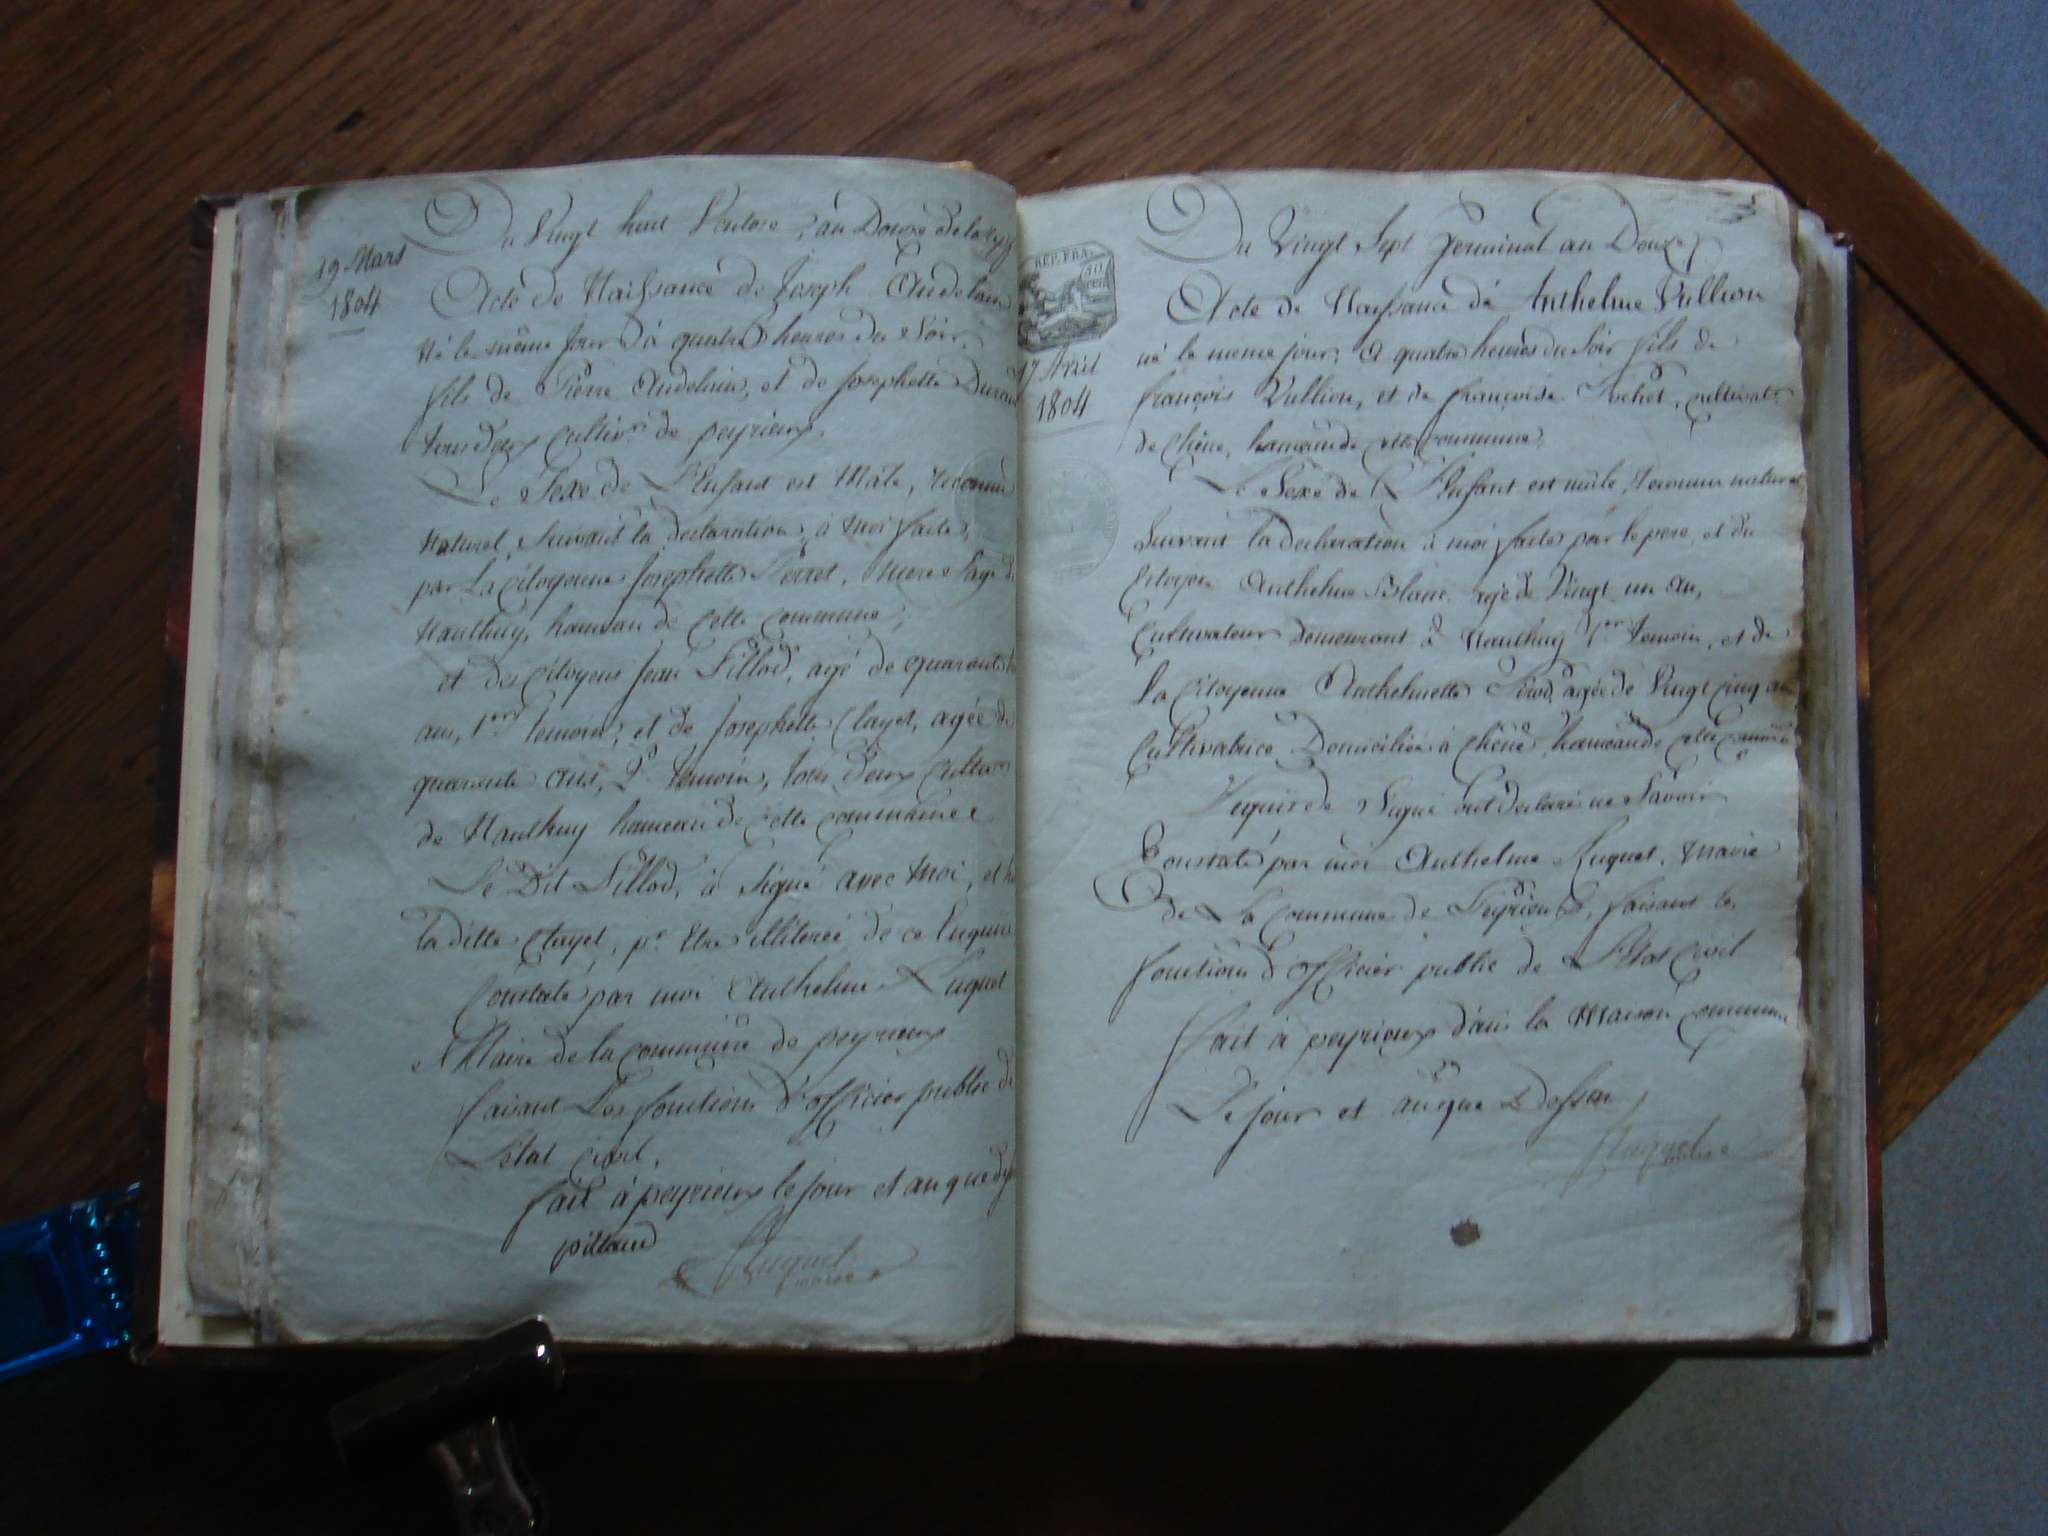 19 Mars
1804
Du Vingt huit Ventose, an Douze de la
Acte de Naissance de Joseph Andelain
Né le même Jour à quatre heures du Soir,
fils de Pierre Andelain, et de Josephette
tous deux Cultivrs de peyrieux
Le Sexe de L'Enfant est Mâle, reconnu
Naturel, Suivant la declaration, à Moi faite,
par La Citoyenne Josephette Perret, Mere Sage de
Nanthuy, hameau de Cette Commune;
et des Citoyens Jean Pillod, agé de quarante
ans, 1er temoin, et de Josephette Clayet, agée de
quarante ans, 2d temoin, tous deux Cultivrs
de Nanthuy hameau de Cette Commune
Le Dit Pillod, à Signé avec Moi, et
la ditte Clayet, pr Etre illiterée de ce Enquise
Constaté par moi Anthelme Luquet
Maire de la Commune de peyrieux
faisant Les fonctions d'officier public de
L'état Civil.
fait à peyrieux le Jour et an que
pillaud
Maire
REP. FRA.
17 Avril
1804
Du Vingt Sept Germinal an Douze
Acte de Naissance de Anthelme Vullion
né le meme Jour, à quatre heures du Soir fils de
françois Vullion, et de françoise Cultivatrs
de Chêne, hameau de cette Commune.
Le Sexe de L'Enfant est mâle, reconnu naturel
Suivant la declaration à moi faite par le pere, et du
Citoyen Anthelme Blanc agé de Vingt un an,
Cultivateur demeurant à Nanthuy 1er temoin, et de
la Citoyenne Anthelmette agée de Vingt Cinq ans
Cultivatrice Domiciliée à Chêne hameau de cette Commune
requis de Signé ont declaré ne Savoir
Constaté par moi Anthelme Luquet, Maire
de La Commune de Peyrieux, faisant les
fonctions d'officier public de L'Etat Civil
fait à peyrieux dans la Maison Commune
Le Jour et an que Dessu
Luquet
maire